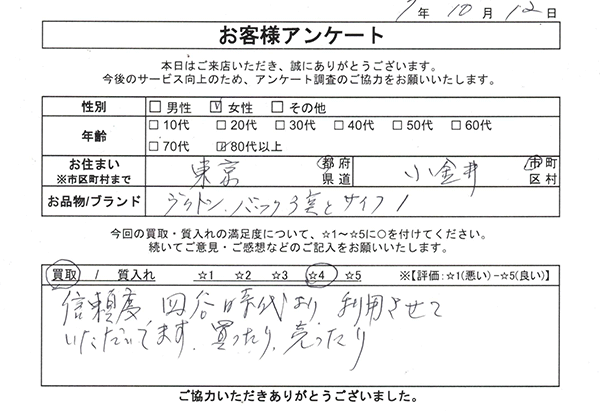 7年10月12日
お客様アンケート
本日はご来店いただき、誠にありがとうございます。
今後のサービス向上のため、アンケート調査のご協力をお願いいたします。
性別 □男性 ☑女性 □その他
年齢 □10代 □20代 □30代 □40代 □50代 □60代
□70代 ☑80代以上
お住まい ※市区町村まで 東京 都府県道 小金井 市町区村
お品物/ブランド バック3実とサイフ1
今回の買取・質入れの満足度について、☆1～☆5に○を付けてください。
続いてご意見・ご感想などのご記入をお願いいたします。
買取 / 質入れ ☆1 ☆2 ☆3 ☆4 ☆5 ※【評価:☆1(悪い)−☆5(良い)】
信頼度、四谷時代より 利用させて
いただいてます、買ったり、売ったり
ご協力いただきありがとうございました。